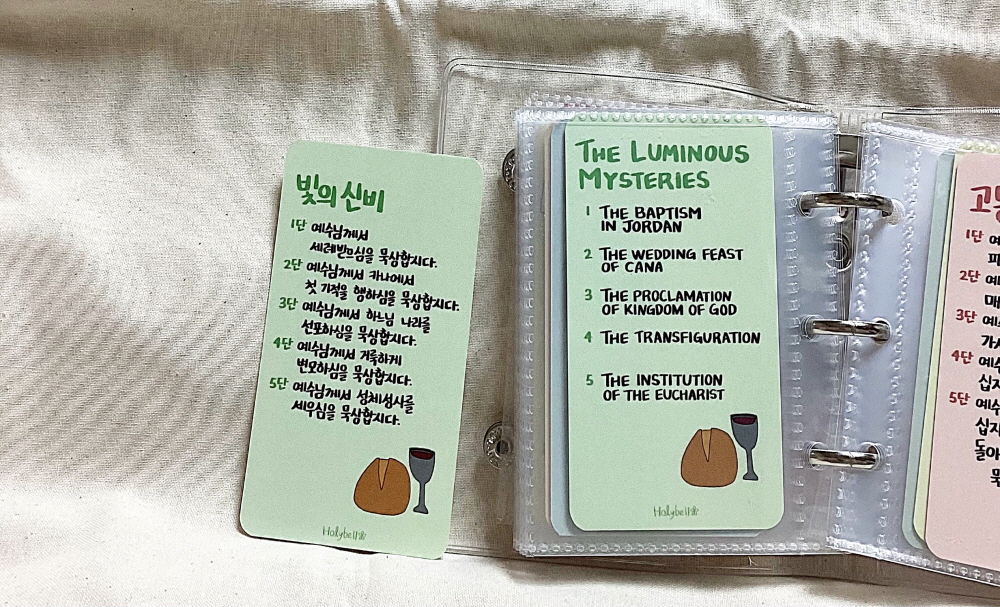 빛의 신비
1단 예수님께서
세례받으심을 묵상합시다.
2단 예수님께서 카나에서
첫 기적을 행하심을 묵상합시다.
3단 예수님께서 하느님 나라를
선포하심을 묵상합시다.
4단 예수님께서 거룩하게
변모하심을 묵상합시다.
5단 예수님께서 성체성사를
세우심을 묵상합시다.
Holybell
THE LUMINOUS
MYSTERIES
1 THE BAPTISM
IN JORDAN
2 THE WEDDING FEAST
OF CANA
3 THE PROCLAMATION
OF KINGDOM OF GOD
4 THE TRANSFIGURATION
5 THE INSTITUTION
OF THE EUCHARIST
Holybell
1단
2단
3단
4단
5단